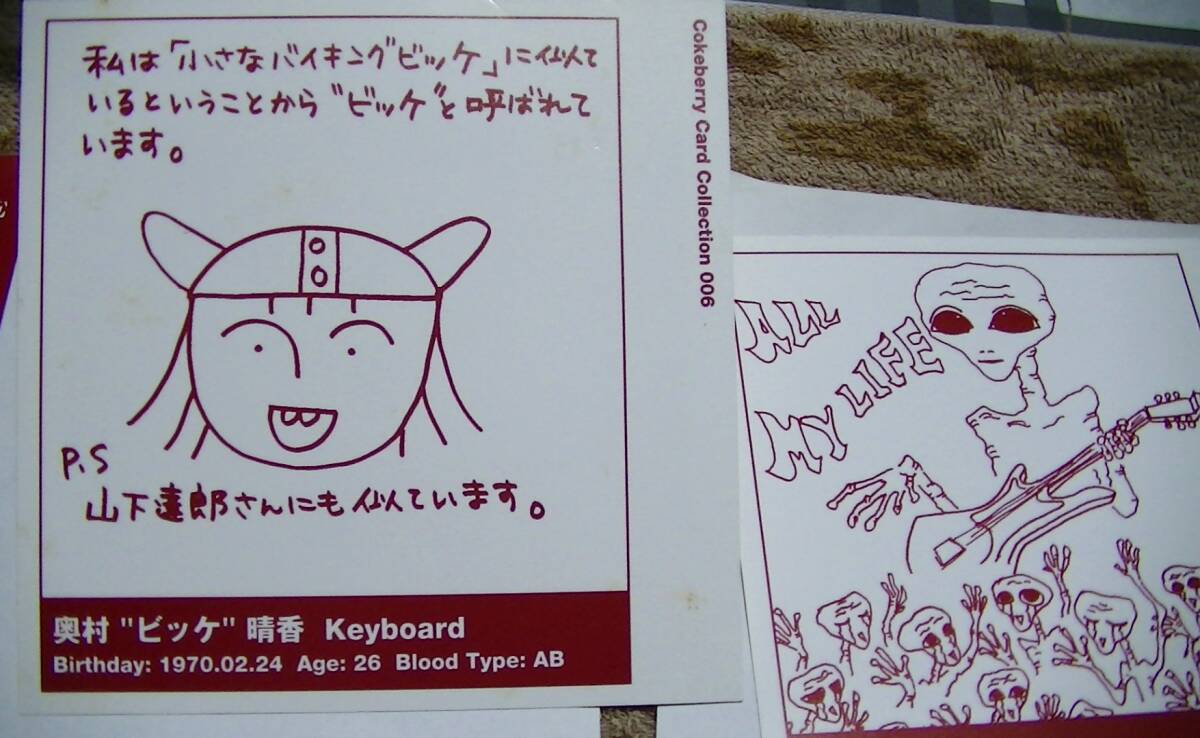 私は「小さなバイキングビッケ」に似て
いるということから"ビッケ"と呼ばれて
います。
P.S
山下達郎さんにも似ています。
奥村 "ビッケ" 晴香 Keyboard
Birthday: 1970.02.24 Age: 26 Blood Type: AB
Cokeberry Card Collection 006
ALL
MY LIFE